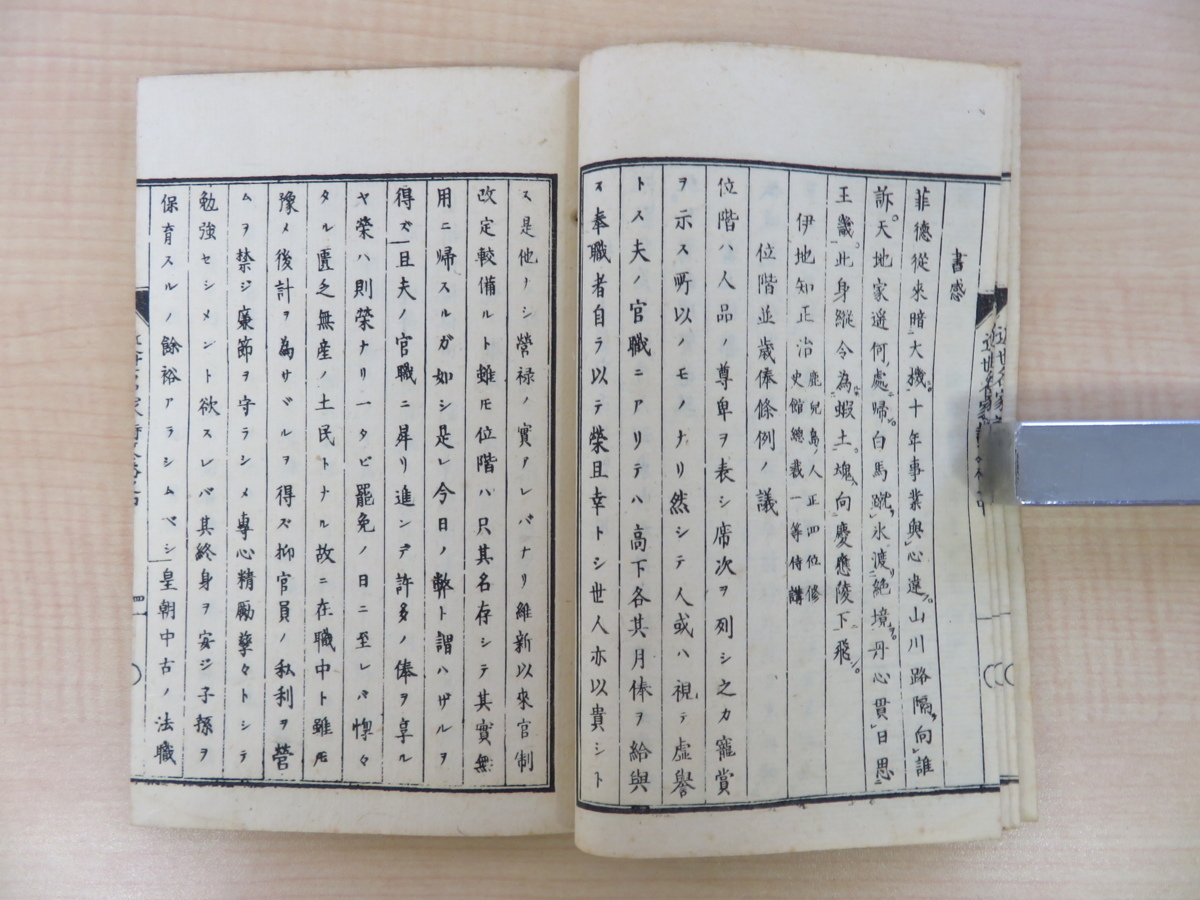 書感
菲德從來暗大機十年事業與心違山川路隔向誰
訴天地家遙何處歸白馬蹴氷渡絕境丹心貫日思
王畿此身縱令為蝦土塊向慶應陵下飛
伊地知正治鹿兒島ノ人正四位修史館總裁一等侍講
位階並歲俸條例ノ議
位階ハ人品ノ尊卑ヲ表シ席次ヲ列シ之カ寵賞
ヲ示ス所以ノモノナリ然シテ人或ハ視テ虛譽
トス夫ノ官職ニアリテハ高下各其月俸ヲ給與
ス奉職者自ラ以テ榮且幸トシ世人亦以貴シト
ス是他ナシ營祿ノ實アレバナリ維新以來官制
改定較備ルト雖モ位階ハ只其名存シテ其實無
用ニ歸スルガ如シ是レ今日ノ弊ト謂ハザルヲ
得ズ且夫ノ官職ニ昇リ進ンデ許多ノ俸ヲ享ル
ヤ榮ハ則榮ナリ一タビ罷免ノ日ニ至レバ惸々
タル匱乏無産ノ土民トナル故ニ在職中ト雖モ
豫メ後計ヲ為サヾルヲ得ズ抑官員ノ私利ヲ營
ムヲ禁ジ廉節ヲ守ラシメ專心精勵孳々トシテ
勉強セシメント欲スレバ其終身ヲ安ジ子孫ヲ
保育スルノ餘裕アラシムベシ皇朝中古ノ法職
近世名家